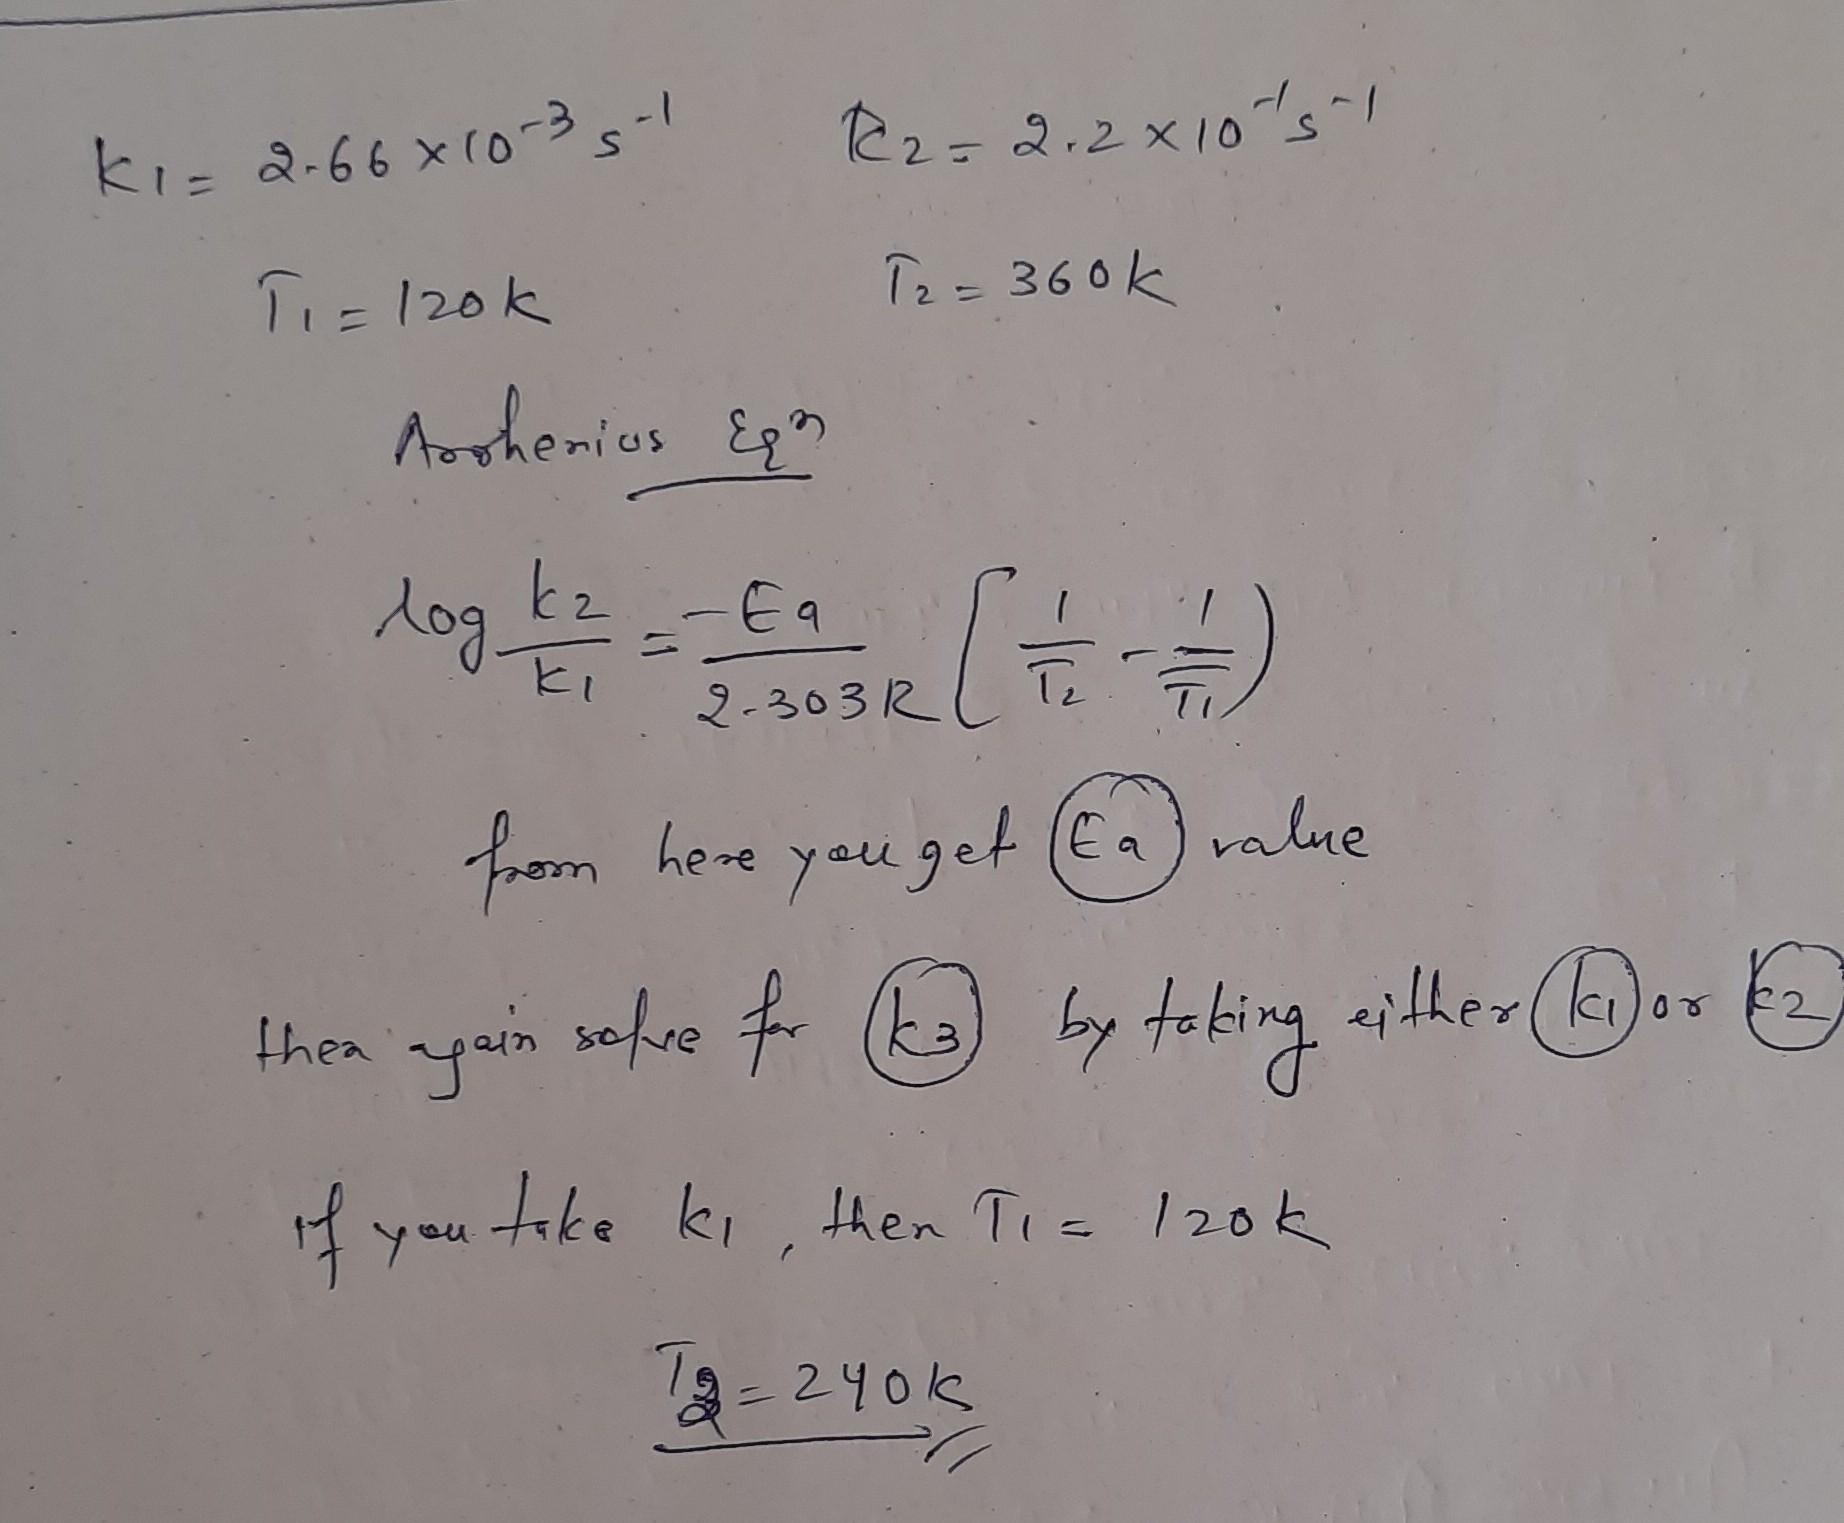 K1 = 2.66 × 10⁻³ s⁻¹    k2 = 2.2 × 10⁻¹ s⁻¹
T1 = 120 K    T2 = 360 K
Arrhenius Eqⁿ
log k2/k1 = -Ea/2.303R [1/T2 - 1/T1)
from here you get Ea value
then again solve for k3 by taking either k1 or k2
if you take k1, then T1 = 120 K
T2 = 240 K